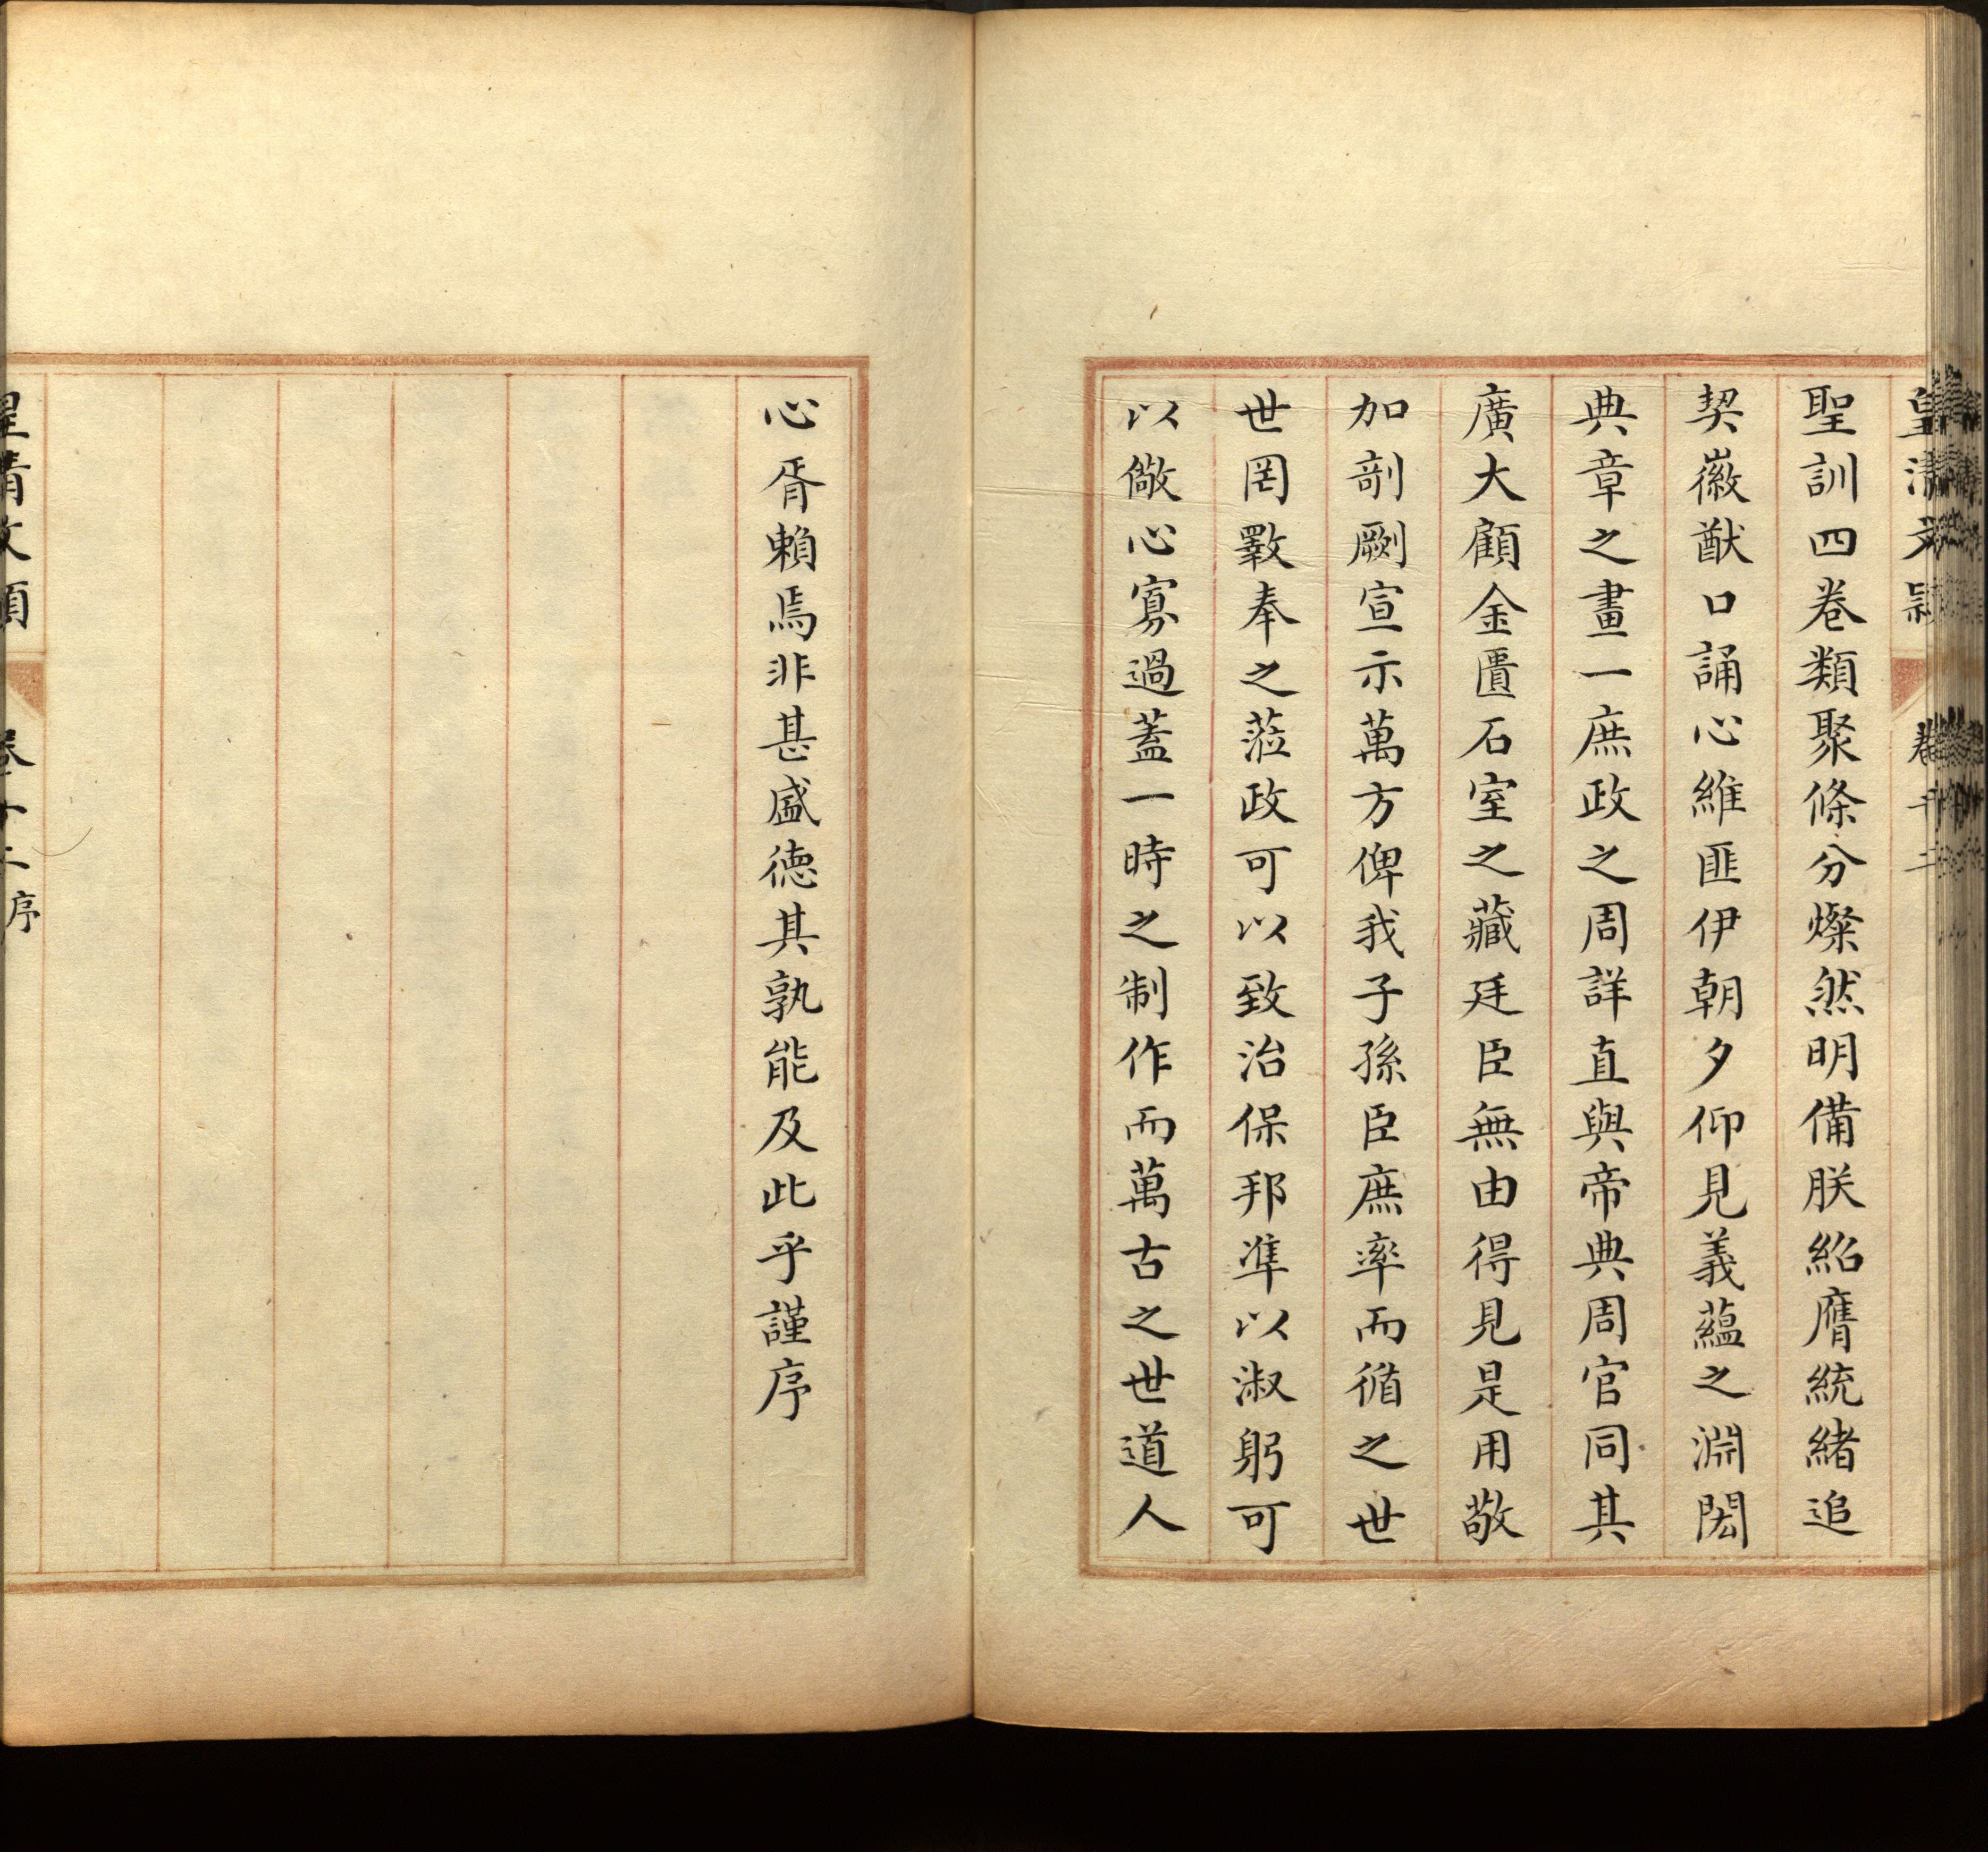 皇清文穎 卷十二
聖訓四卷類聚條分燦然明備朕紹膺統緒追
契徽猷口誦心維匪伊朝夕仰見義蘊之淵閎
典章之畫一庶政之周詳直與帝典周官同其
廣大顧金匱石室之藏廷臣無由得見是用敬
加剞劂宣示萬方俾我子孫臣庶率而循之世
世罔斁奉之蒞政可以致治保邦凖以淑躬可
以儆心寡過蓋一時之制作而萬古之世道人
心胥賴焉非甚盛德其孰能及此乎謹序
皇清文穎 卷十二 序